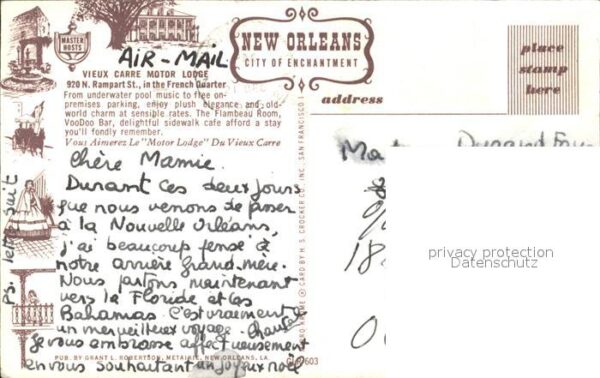 MASTER
HOSTS
AIR-MAIL
VIEUX CARRE MOTOR LODGE
920 N. Rampart St., in the French Quarter
From underwater pool music to free on-
premises parking, enjoy plush elegance and old-
world charm at sensible rates. The Flambeau Room,
VooDoo Bar, delightful sidewalk cafe afford a stay
you'll fondly remember.
Vous Aimerez Le "Motor Lodge" Du Vieux Carre
NEW ORLEANS
CITY OF ENCHANTMENT
place
stamp
here
address
Chère Mamie.
Durant ces deux jours
que nous venons de passer
à la Nouvelle Orléans,
j'ai beaucoup pensé à
notre arrière grand-mère.
Nous partons maintenant
vers la Floride et les
Bahamas. C'est vraiment
un merveilleux voyage.
je vous embrasse affectueusement
en vous souhaitant un joyeux noël
PS. lettre suit
CARD BY H. S. CROCKER CO., INC. SAN FRANCISCO
PUB. BY GRANT L. ROBERTSON, METAIRIE, NEW ORLEANS, LA.
Durand
18
privacy protection
Datenschutz